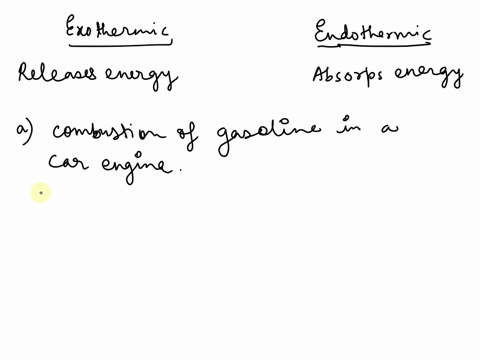 Exothermic
Endothermic
Releases energy
Absorps energy
a) combustion of gasoline in a
car engine.